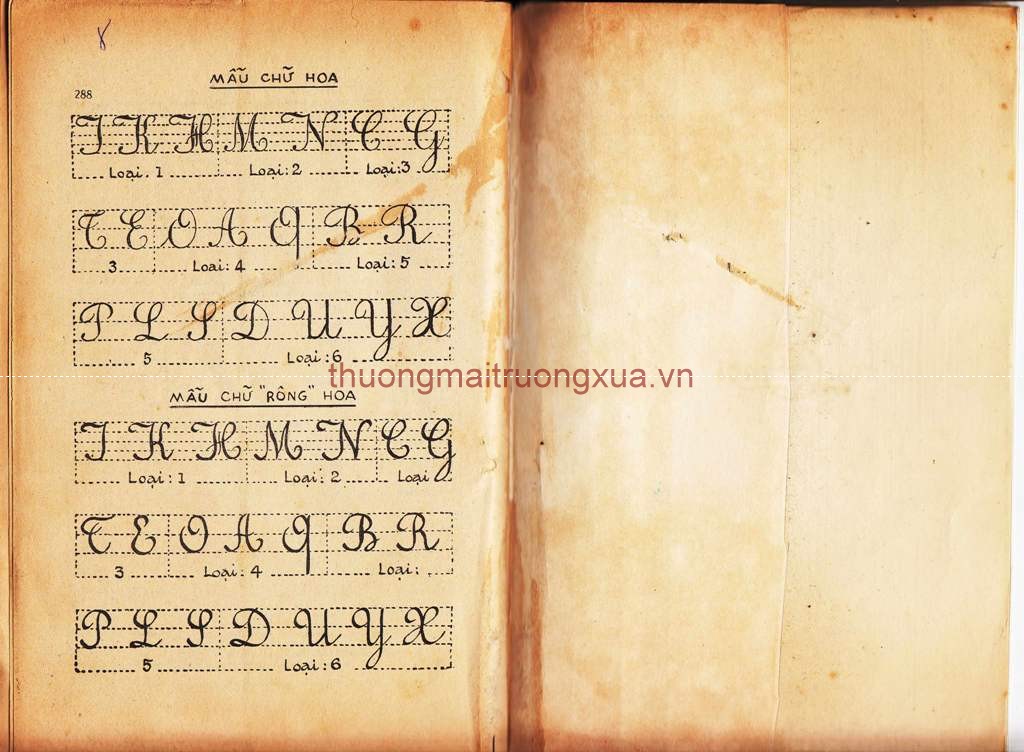 MẪU CHỮ HOA
288
I K H M N C G
Loại. 1 Loại: 2 Loại: 3
T E O A Q B R
3 Loại: 4 Loại: 5
P L S D U Y X
5 Loại: 6
thuongmaitruongxua.vn
MẪU CHỮ "RÔNG" HOA
I K H M N C G
Loại: 1 Loại: 2 Loại
T E O A Q B R
3 Loại: 4 Loại:
P L S D U Y X
5 Loại: 6